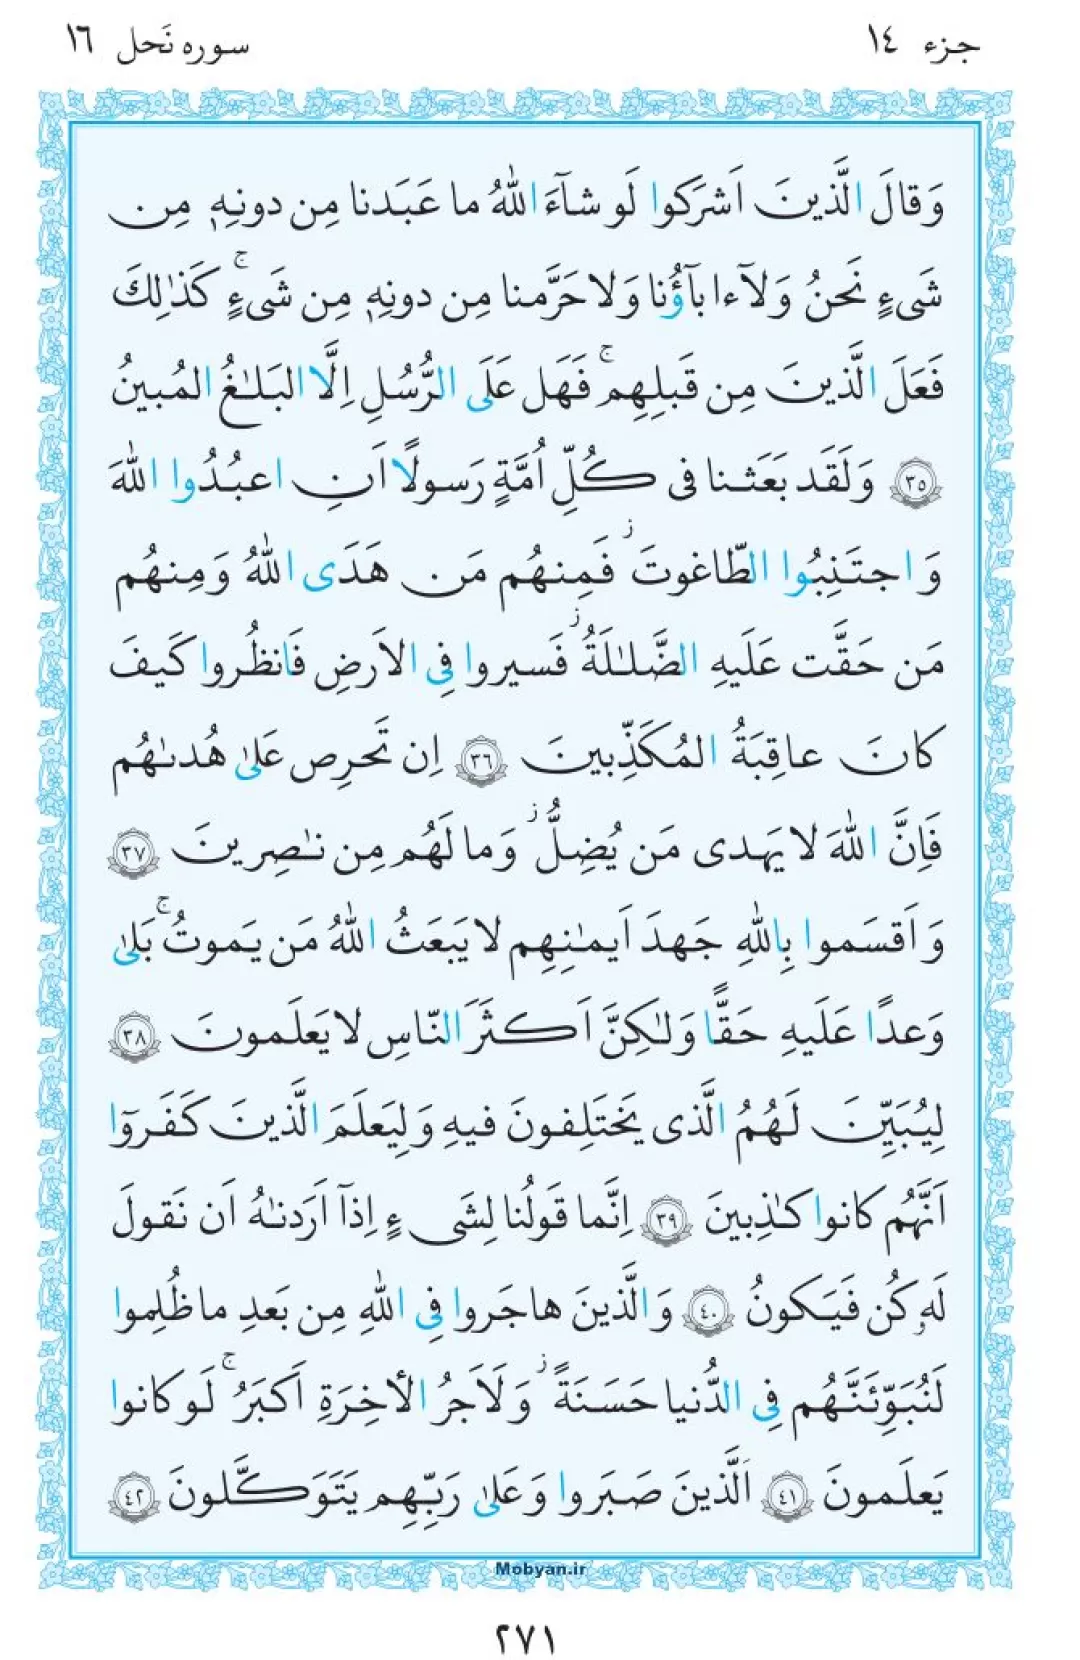 جزء ١٤
سوره نَحل ١٦
وَ قالَ الَّذينَ اَشرَكوا لَو شآءَ اللهُ ما عَبَدنا مِن دونِهٖ مِن
شَیءٍ نَحنُ وَ لآ ءابآؤُنا وَ لا حَرَّمنا مِن دونِهٖ مِن شَیءٍۚ كَذٰلِكَ
فَعَلَ الَّذينَ مِن قَبلِهِمۚ فَهَل عَلَى الرُّسُلِ اِلَّا البَلـٰغُ المُبينُ
﴿٣٥﴾ وَ لَقَد بَعَثنا فی كُلِّ اُمَّةٍ رَسولًا اَنِ اعبُدُوا اللهَ
وَ اجتَنِبُوا الطّاغوتَ ز فَمِنهُم مَن هَدَى اللهُ وَ مِنهُم
مَن حَقَّت عَلَيهِ الضَّلـٰلَةُ ز فَسيروا فِی الاَرضِ فَانظُروا كَيفَ
كانَ عاقِبَةُ المُكَذِّبينَ ﴿٣٦﴾ اِن تَحرِص عَلىٰ هُدىٰهُم
فَاِنَّ اللهَ لا يَهدی مَن يُضِلُّ ز وَ ما لَهُم مِن نـٰصِرينَ ﴿٣٧﴾
وَ اَقسَموا بِاللهِ جَهدَ اَيمـٰنِهِم لا يَبعَثُ اللهُ مَن يَموتُۚ بَلىٰ
وَعدًا عَلَيهِ حَقًّا وَ لـٰكِنَّ اَكثَرَ النّاسِ لا يَعلَمونَ ﴿٣٨﴾
لِيُبَيِّنَ لَهُمُ الَّذی يَختَلِفونَ فيهِ وَ لِيَعلَمَ الَّذينَ كَفَروٓا
اَنَّهُم كانوا كـٰذِبينَ ﴿٣٩﴾ اِنَّما قَولُنا لِشَیءٍ اِذآ اَرَدنـٰهُ اَن نَقولَ
لَهٗ كُن فَيَكونُ ﴿٤٠﴾ وَ الَّذينَ هاجَروا فِی اللهِ مِن بَعدِ ما ظُلِموا
لَنُبَوِّئَنَّهُم فِی الدُّنيا حَسَنَةً ز وَ لَاَجرُ الأخِرَةِ اَكبَرُۚ لَو كانوا
يَعلَمونَ ﴿٤١﴾ اَلَّذينَ صَبَروا وَ عَلىٰ رَبِّهِم يَتَوَكَّلونَ ﴿٤٢﴾
Mobyan.ir
٢٧١